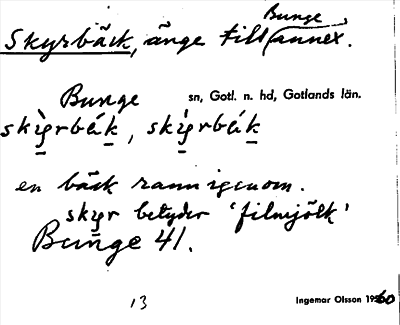 Skyrbäck, änge till Bunge annex.
Bunge sn, Gotl. n. hd, Gotlands län.
en bäck rann igenom.
skyr betyder 'filmjölk'
Bunge 41.
13 Ingemar Olsson 1960